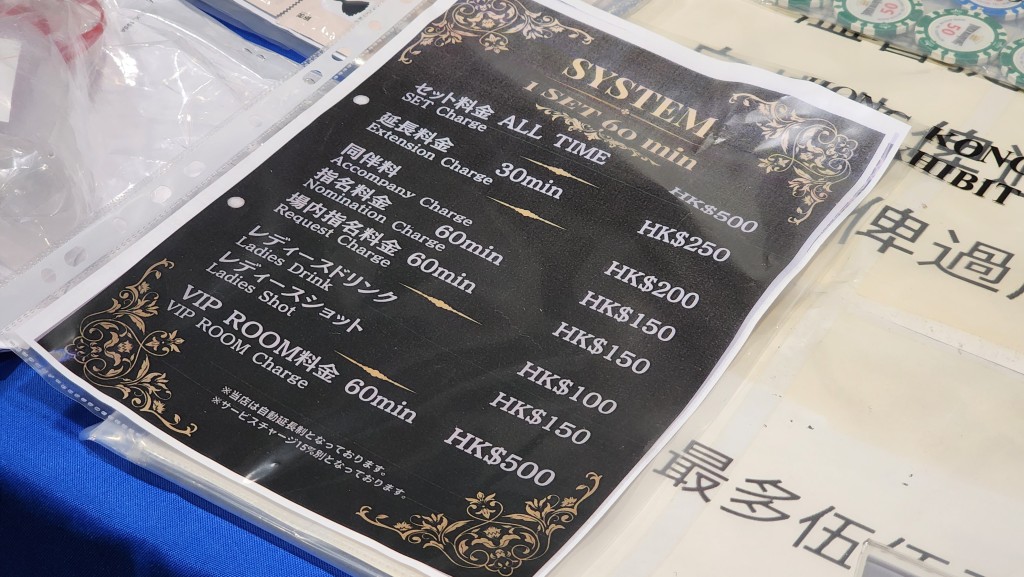 SYSTEM
1 SET 60 min
セット料金 ALL TIME HK$500
SET Charge
延長料金 30min HK$250
Extension Charge
同伴料 HK$200
Accompany Charge
指名料金 60min HK$150
Nomination Charge
場内指名料金 60min HK$150
Request Charge
レディースドリンク HK$100
Ladies Drink
レディースショット HK$150
Ladies Shot
VIP ROOM料金 60min HK$500
VIP ROOM Charge
※当店は自動延長制となっております。
※サービスチャージ15%別となっております。
KONG
HIBIT
俾過
最多伍
50
50